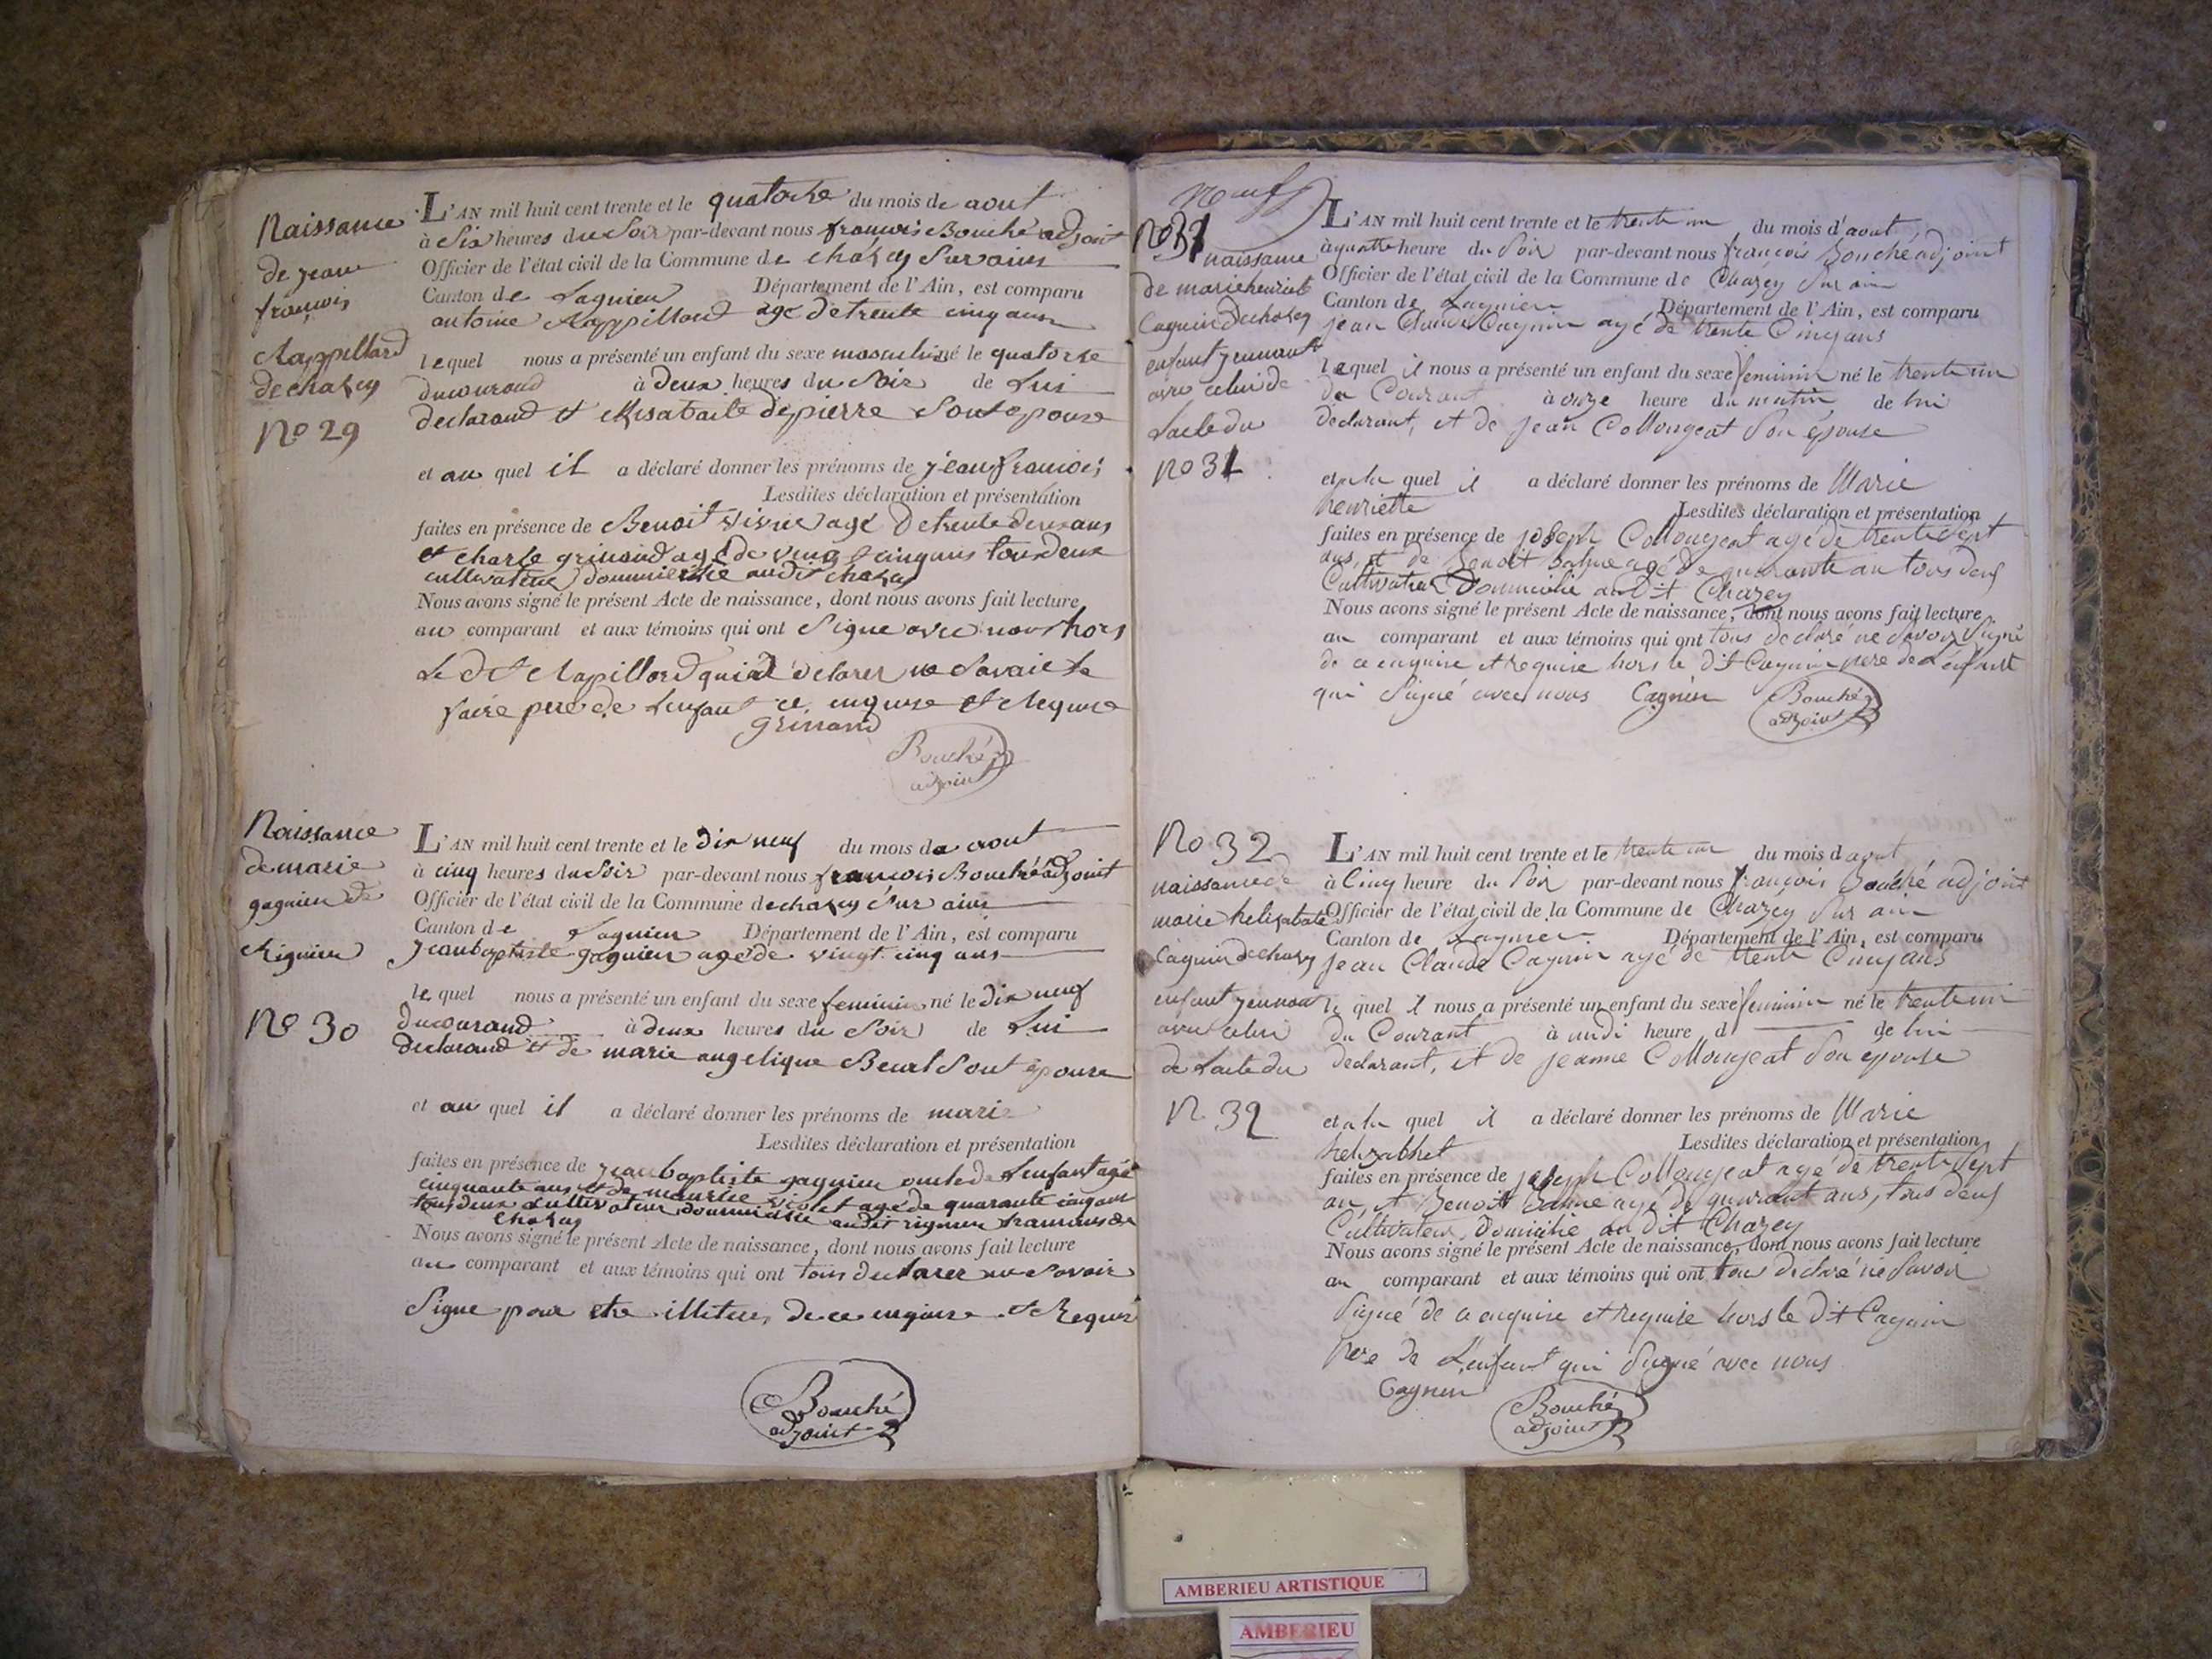 Naissance
de jean
françois
Rappillard
de chazey
No 29
L'AN mil huit cent trente et le quatorze du mois de aout
à Six heures du Soir par-devant nous françois Bouché adjoint
Officier de l'état civil de la Commune de chazey Sur ains
Canton de Lagnieu Département de l'Ain, est comparu
antoine Rappillard agé de trente cinq ans
lequel nous a présenté un enfant du sexe masculin né le quatorze
ducourand à deux heures du Soir de Lui
declarand et Elisabaite depierre Sont epouse
et au quel il a déclaré donner les prénoms de jean françois
Lesdites déclaration et présentation
faites en présence de Benoit vivier agé de trente deux ans
et charle grinand agé de vingt cinq ans tous deux
cultivateur domicilié audit chazey
Nous avons signé le présent Acte de naissance, dont nous avons fait lecture
au comparant et aux témoins qui ont Signe avec nous hors
Le dit Rapillard qui a declarer ne Savair le
faire pere de Lenfant ce enquire et Requise
Grinand
Bouché
adjoint
Naissance
de marie
gagnieu de
Rignieu
No 30
L'AN mil huit cent trente et le dix neuf du mois de aout
à cinq heures du Soir par-devant nous françois Bouché adjoint
Officier de l'état civil de la Commune de chazey Sur ains
Canton de Lagnieu Département de l'Ain, est comparu
jeanbaptiste gagnieu agé de vingt cinq ans
le quel nous a présenté un enfant du sexe feminin né le dix neuf
ducourand à deux heures du Soir de Lui
declarand et de marie angelique Beurt Sont epouse
et au quel il a déclaré donner les prénoms de marie
Lesdites déclaration et présentation
faites en présence de jeanbaptiste gagnieu oncle de Lenfant agé
cinquante ans et de maurice violet agé de quarante cinq ans
tous deux cultivateur domicilié audit rignieu hameaus de
chazey
Nous avons signé le présent Acte de naissance, dont nous avons fait lecture
au comparant et aux témoins qui ont tous declarer ne Savoir
Signe pour etre illiteres de ce enquire et Requis
Bouché
adjoint
neuf
No 31
naissance
de marie henriete
Cagnin de chazey
enfant jeumant
avec celui de
Lacte du
no 31
L'AN mil huit cent trente et le trente un du mois d'aout
à quatre heure du Soir par-devant nous françois Bouché adjoint
Officier de l'état civil de la Commune de Chazey Sur ain
Canton de Lagnieu Département de l'Ain, est comparu
jean Claude Cagnin agé de trente Cinq ans
lequel il nous a présenté un enfant du sexe feminin né le trente un
du Courant à onze heure du matin de lui
declarant, et de jean Collongeat Son épouse
et a la quel il a déclaré donner les prénoms de Marie
henriette Lesdites déclaration et présentation
faites en présence de joseph Collongeat agé de trente Sept
ans, et de Benoit Balme agé de quarante an tous deux
Cultivateur Domicilié au Dit Chazey
Nous avons signé le présent Acte de naissance, dont nous avons fait lecture
au comparant et aux témoins qui ont tous declaré ne Savoir Signé
de ce enquire et requise hors le dit Cagnin pere de Lenfant
qui Signé avec nous Cagnin Bouché
adjoint
No 32
naissance de
marie helizabate
Cagnin de chazey
enfant jeumant
avec celui
de Lacte du
N. 32
L'AN mil huit cent trente et le trente un du mois d aout
à Cinq heure du Soir par-devant nous françois Bouché adjoint
Officier de l'état civil de la Commune de Chazey Sur ain
Canton de Lagnieu Département de l'Ain, est comparu
jean Claude Cagnin agé de trente Cinq ans
le quel il nous a présenté un enfant du sexe feminin né le trente un
du Courant à midi heure d de lui
declarant, et de jeanne Collongeat Son epouse
et a la quel il a déclaré donner les prénoms de Marie
helizabhet Lesdites déclaration et présentation
faites en présence de joseph Collongeat agé de trente Sept
an et Benoit Balme agé de quarant ans, tous deux
Cultivateur Domicilié au dit Chazey
Nous avons signé le présent Acte de naissance, dont nous avons fait lecture
au comparant et aux témoins qui ont tous declaré ne Savoir
Signé de ce enquire et requise hors le Dit Cagnin
Pere de L'enfant qui Signé avec nous
Cagnin Bouché
adjoint
AMBERIEU ARTISTIQUE
AMBERIEU